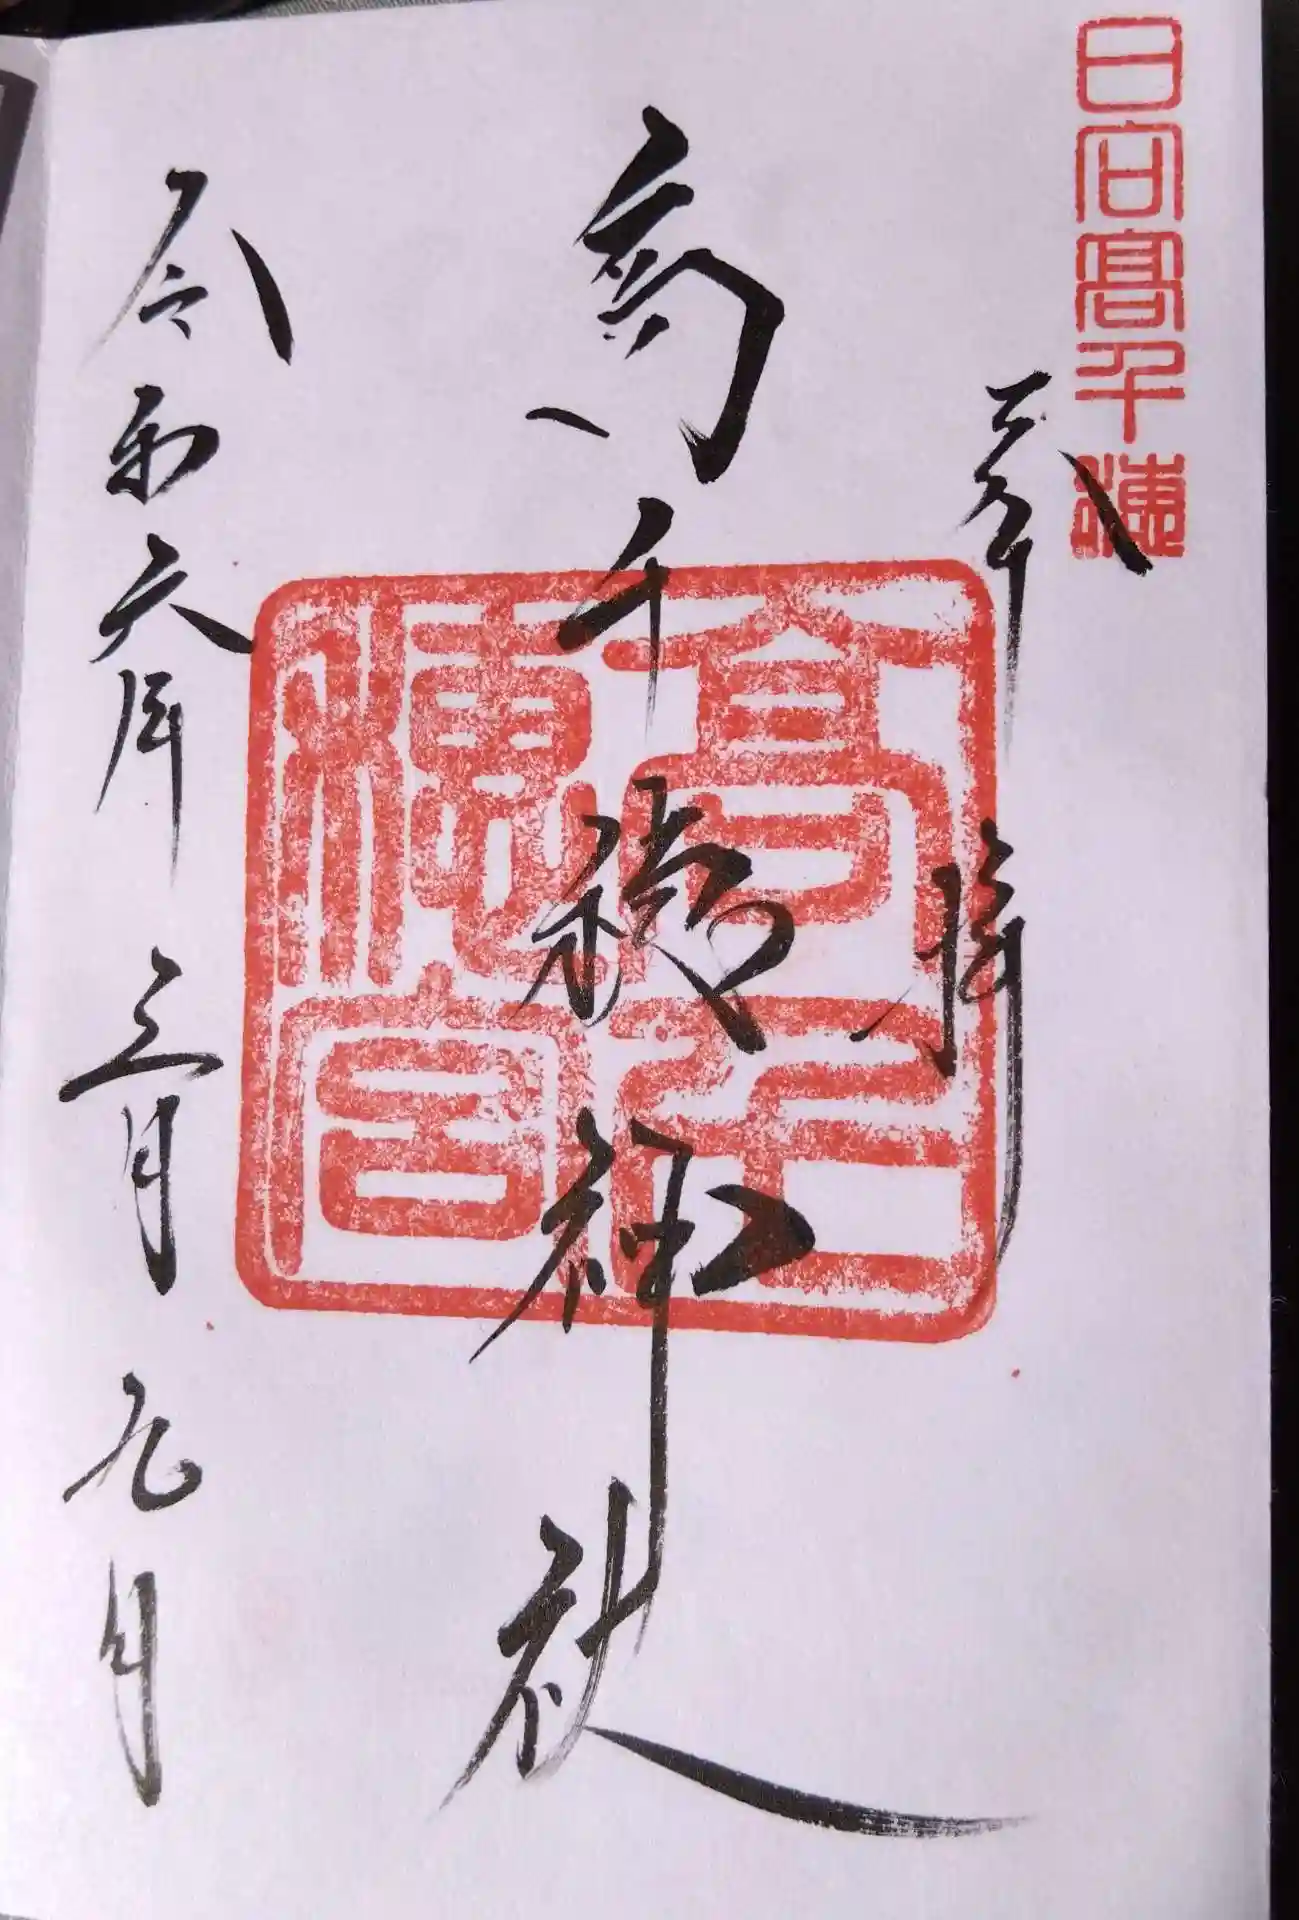 日向高千穂
奉拝
高千穂神社
高千穂宮
令和六年三月九日